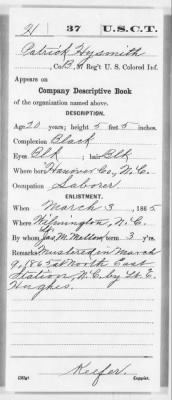 H 37 U.S.C.T.
Patrick Hysmith
, Co. B, 37 Reg't U. S. Colored Inf.
Appears on
Company Descriptive Book
of the organization named above.
DESCRIPTION.
Age 20 years; height 5 feet 5 inches.
Complexion Black
Eyes Blk ; hair Blk
Where born Hanover Co, N.C.
Occupation Laborer
ENLISTMENT.
When March 3, 1865
Where Wilmington, N.C.
By whom Jas. M. Mellon; term 3 y'rs.
Remarks: Mustered in March
9, 1865 at North East
Station, N.C. by Lt. E.
Hughes.
Keefer
Copyist.